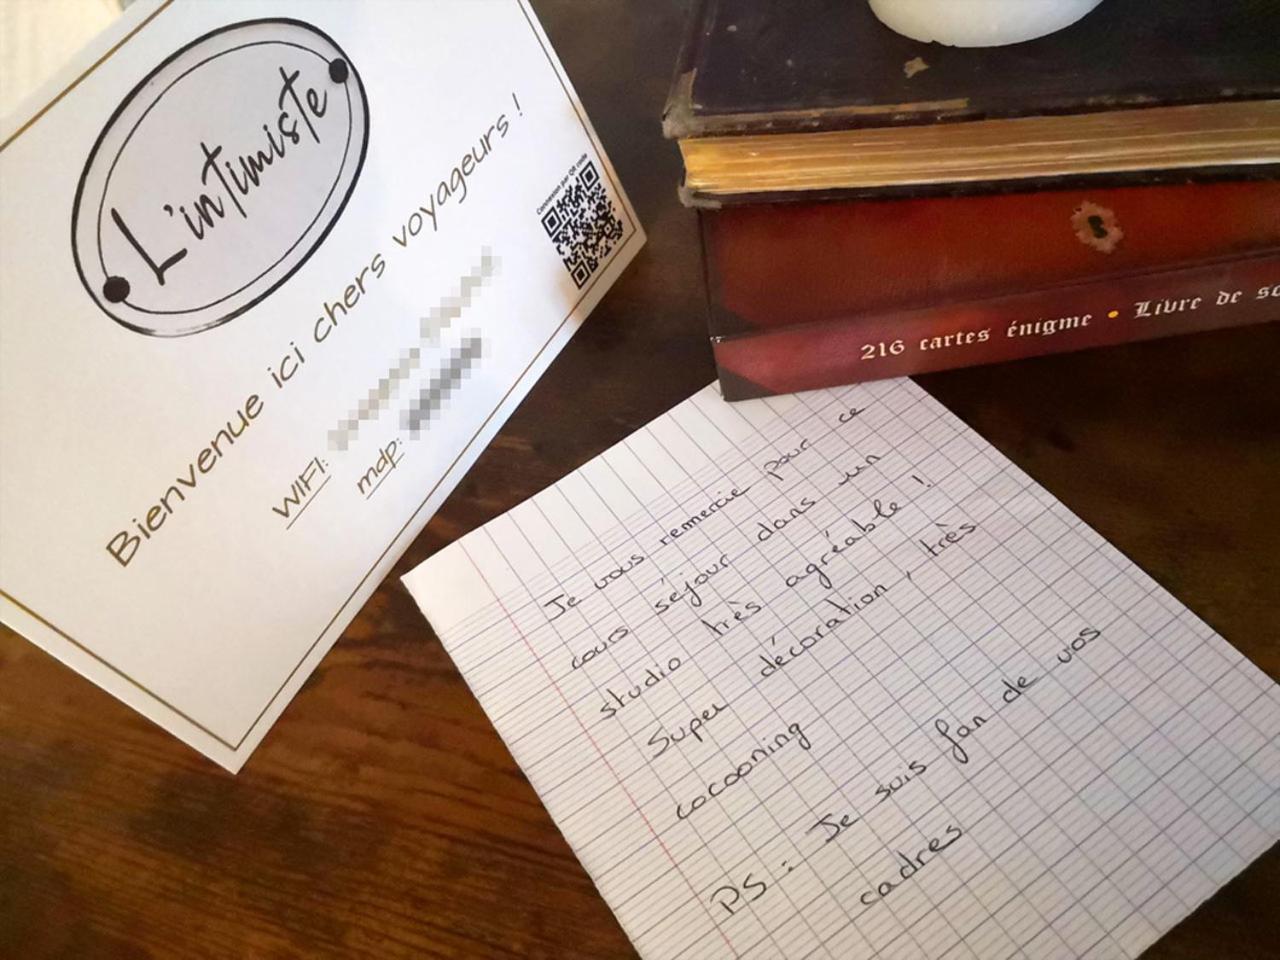 L'intimiste
Bienvenue ici chers voyageurs !
WIFI:
mdp:
Connexion par QR code
216 cartes énigme • Livre de so
Je vous remercie pour ce
cours séjour dans un
studio très agréable !
Super décoration, très
cocooning
PS : Je suis fan de vos
cadres